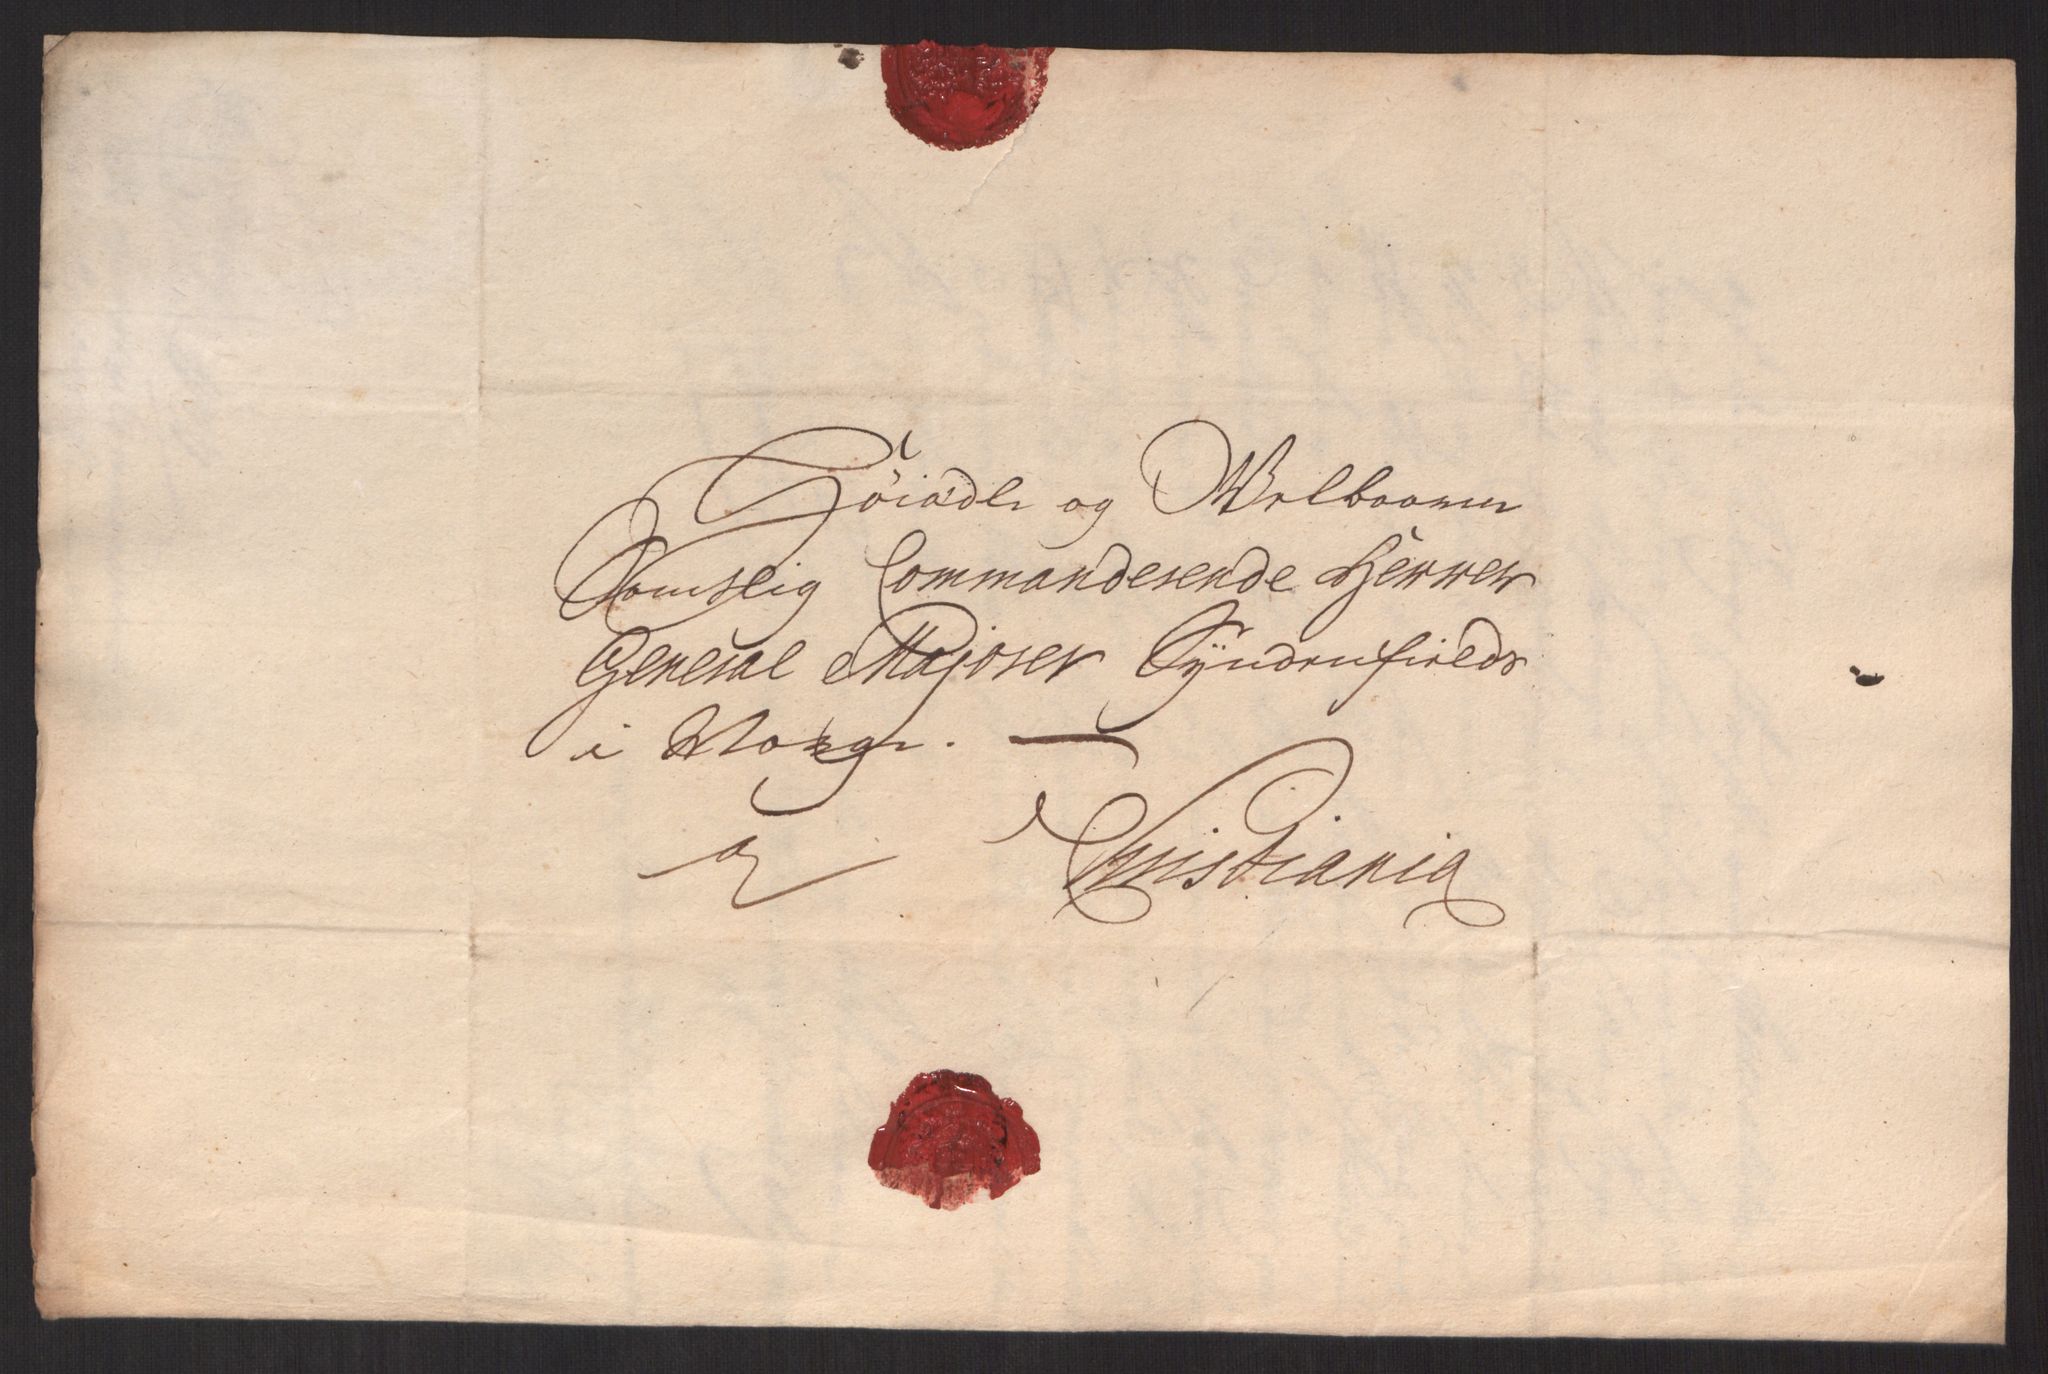 Höiædle og Welbaarne
Samtlig Commanderende Herrer
General Majorer Syndenfields
i Norge.
a
Christiania